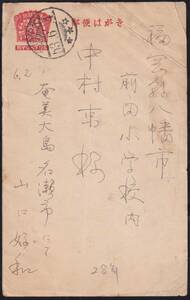 郵便はがき
福岡縣八幡市
前田小学校内
中村東様
6.2
奄美大島名瀬市にて
山口好和
28年